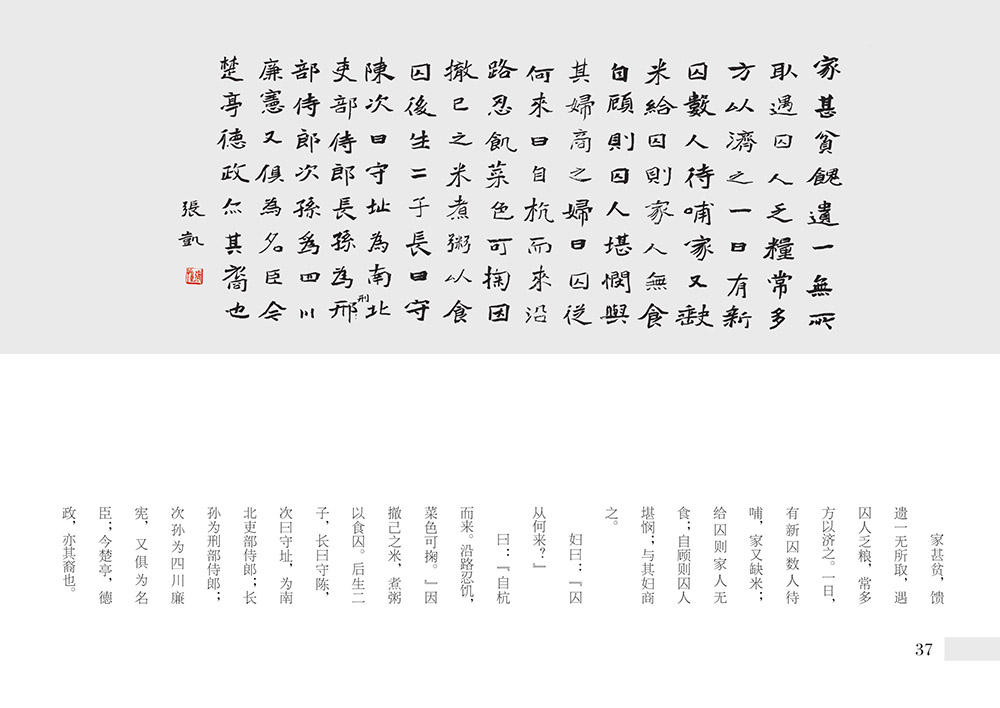 家甚貧餽遺一無所
取遇囚人乏糧常多
方以濟之一日有新
囚數人待哺家又缺
米給囚則家人無食
自顧則囚人堪憫與
其婦商之婦曰囚從
何來曰自杭而來沿
路忍飢菜色可掬因
撤已之米煮粥以食
囚後生二子長曰守
陳次曰守址為南北
刑
吏部侍郎長孫為邢
部侍郎次孫為四川
廉憲又俱為名臣今
楚亭德政亦其裔也
張凱
家甚贫，馈
遗一无所取，遇
囚人乏粮，常多
方以济之。一日，
有新囚数人待
哺，家又缺米；
给囚则家人无
食；自顾则囚人
堪悯；与其妇商
之。
妇曰：『囚
从何来？』
曰：『自杭
而来。沿路忍饥，
菜色可掬。』因
撤己之米，煮粥
以食囚。后生二
子，长曰守陈，
次曰守址，为南
北吏部侍郎；长
孙为刑部侍郎；
次孙为四川廉
宪，又俱为名
臣；今楚亭，德
政，亦其裔也。
37